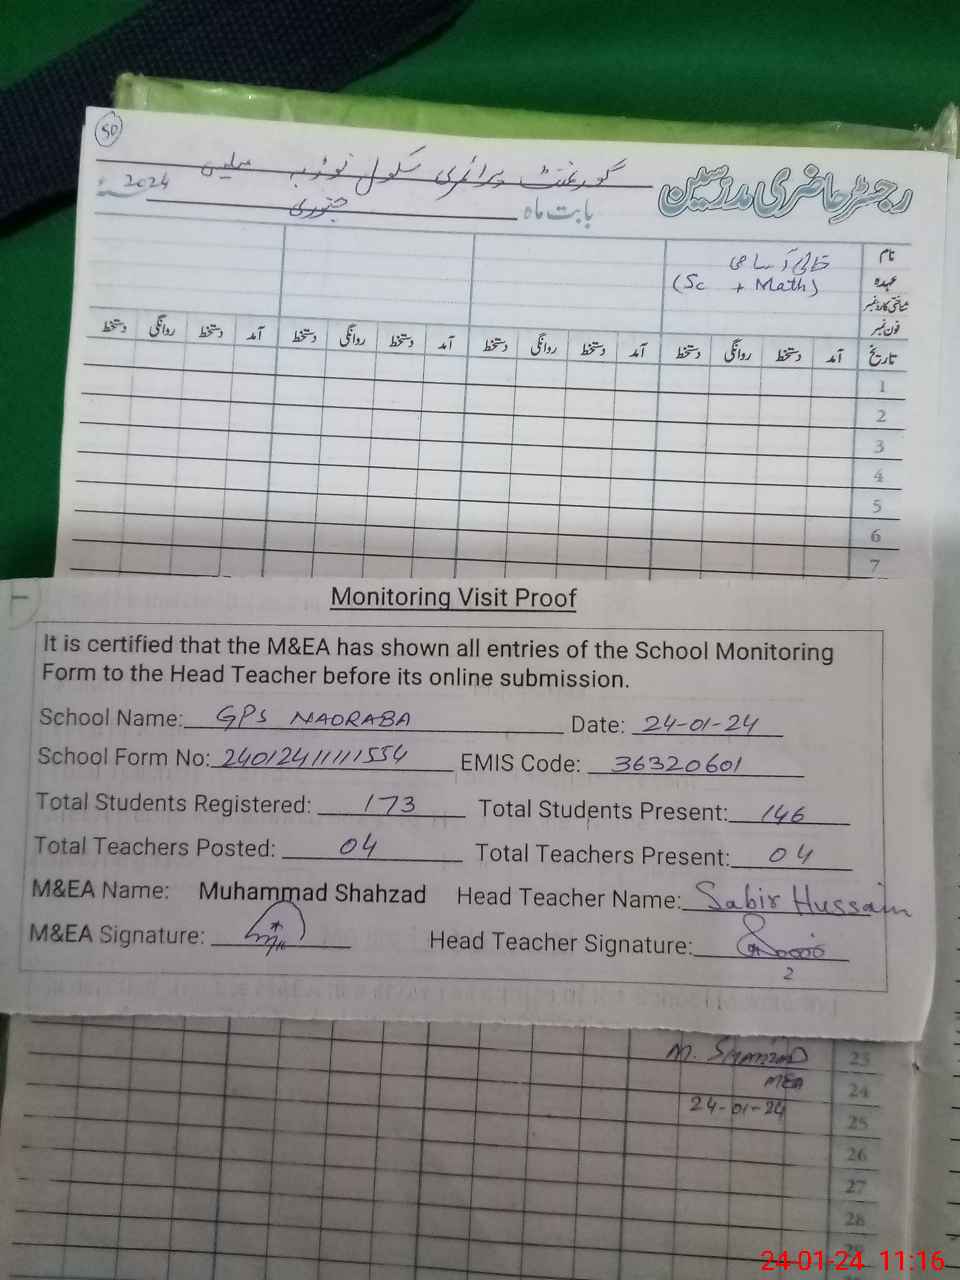 50
گورنمنٹ پرائمری سکول نوڑبہ
رجسٹر حاضری مدرسین
بابت ماہ جنوری 2024ء
نام خالی آسامی
عہدہ (Sc + Math)
شناختی کارڈ نمبر
فون نمبر
تاریخ آمد دستخط روانگی دستخط آمد دستخط روانگی دستخط آمد دستخط روانگی دستخط آمد دستخط روانگی دستخط
1
2
3
4
5
6
7
Monitoring Visit Proof
It is certified that the M&EA has shown all entries of the School Monitoring
Form to the Head Teacher before its online submission.
School Name: GPS NAORABA Date: 24-01-24
School Form No: 24012411111554 EMIS Code: 36320601
Total Students Registered: 173 Total Students Present: 146
Total Teachers Posted: 04 Total Teachers Present: 04
M&EA Name: Muhammad Shahzad Head Teacher Name: Sabir Hussain
M&EA Signature: Head Teacher Signature:
2
M. SHAHZAD 23
MEA 24
24-01-24 25
26
27
28
29
24-01-24 11:16